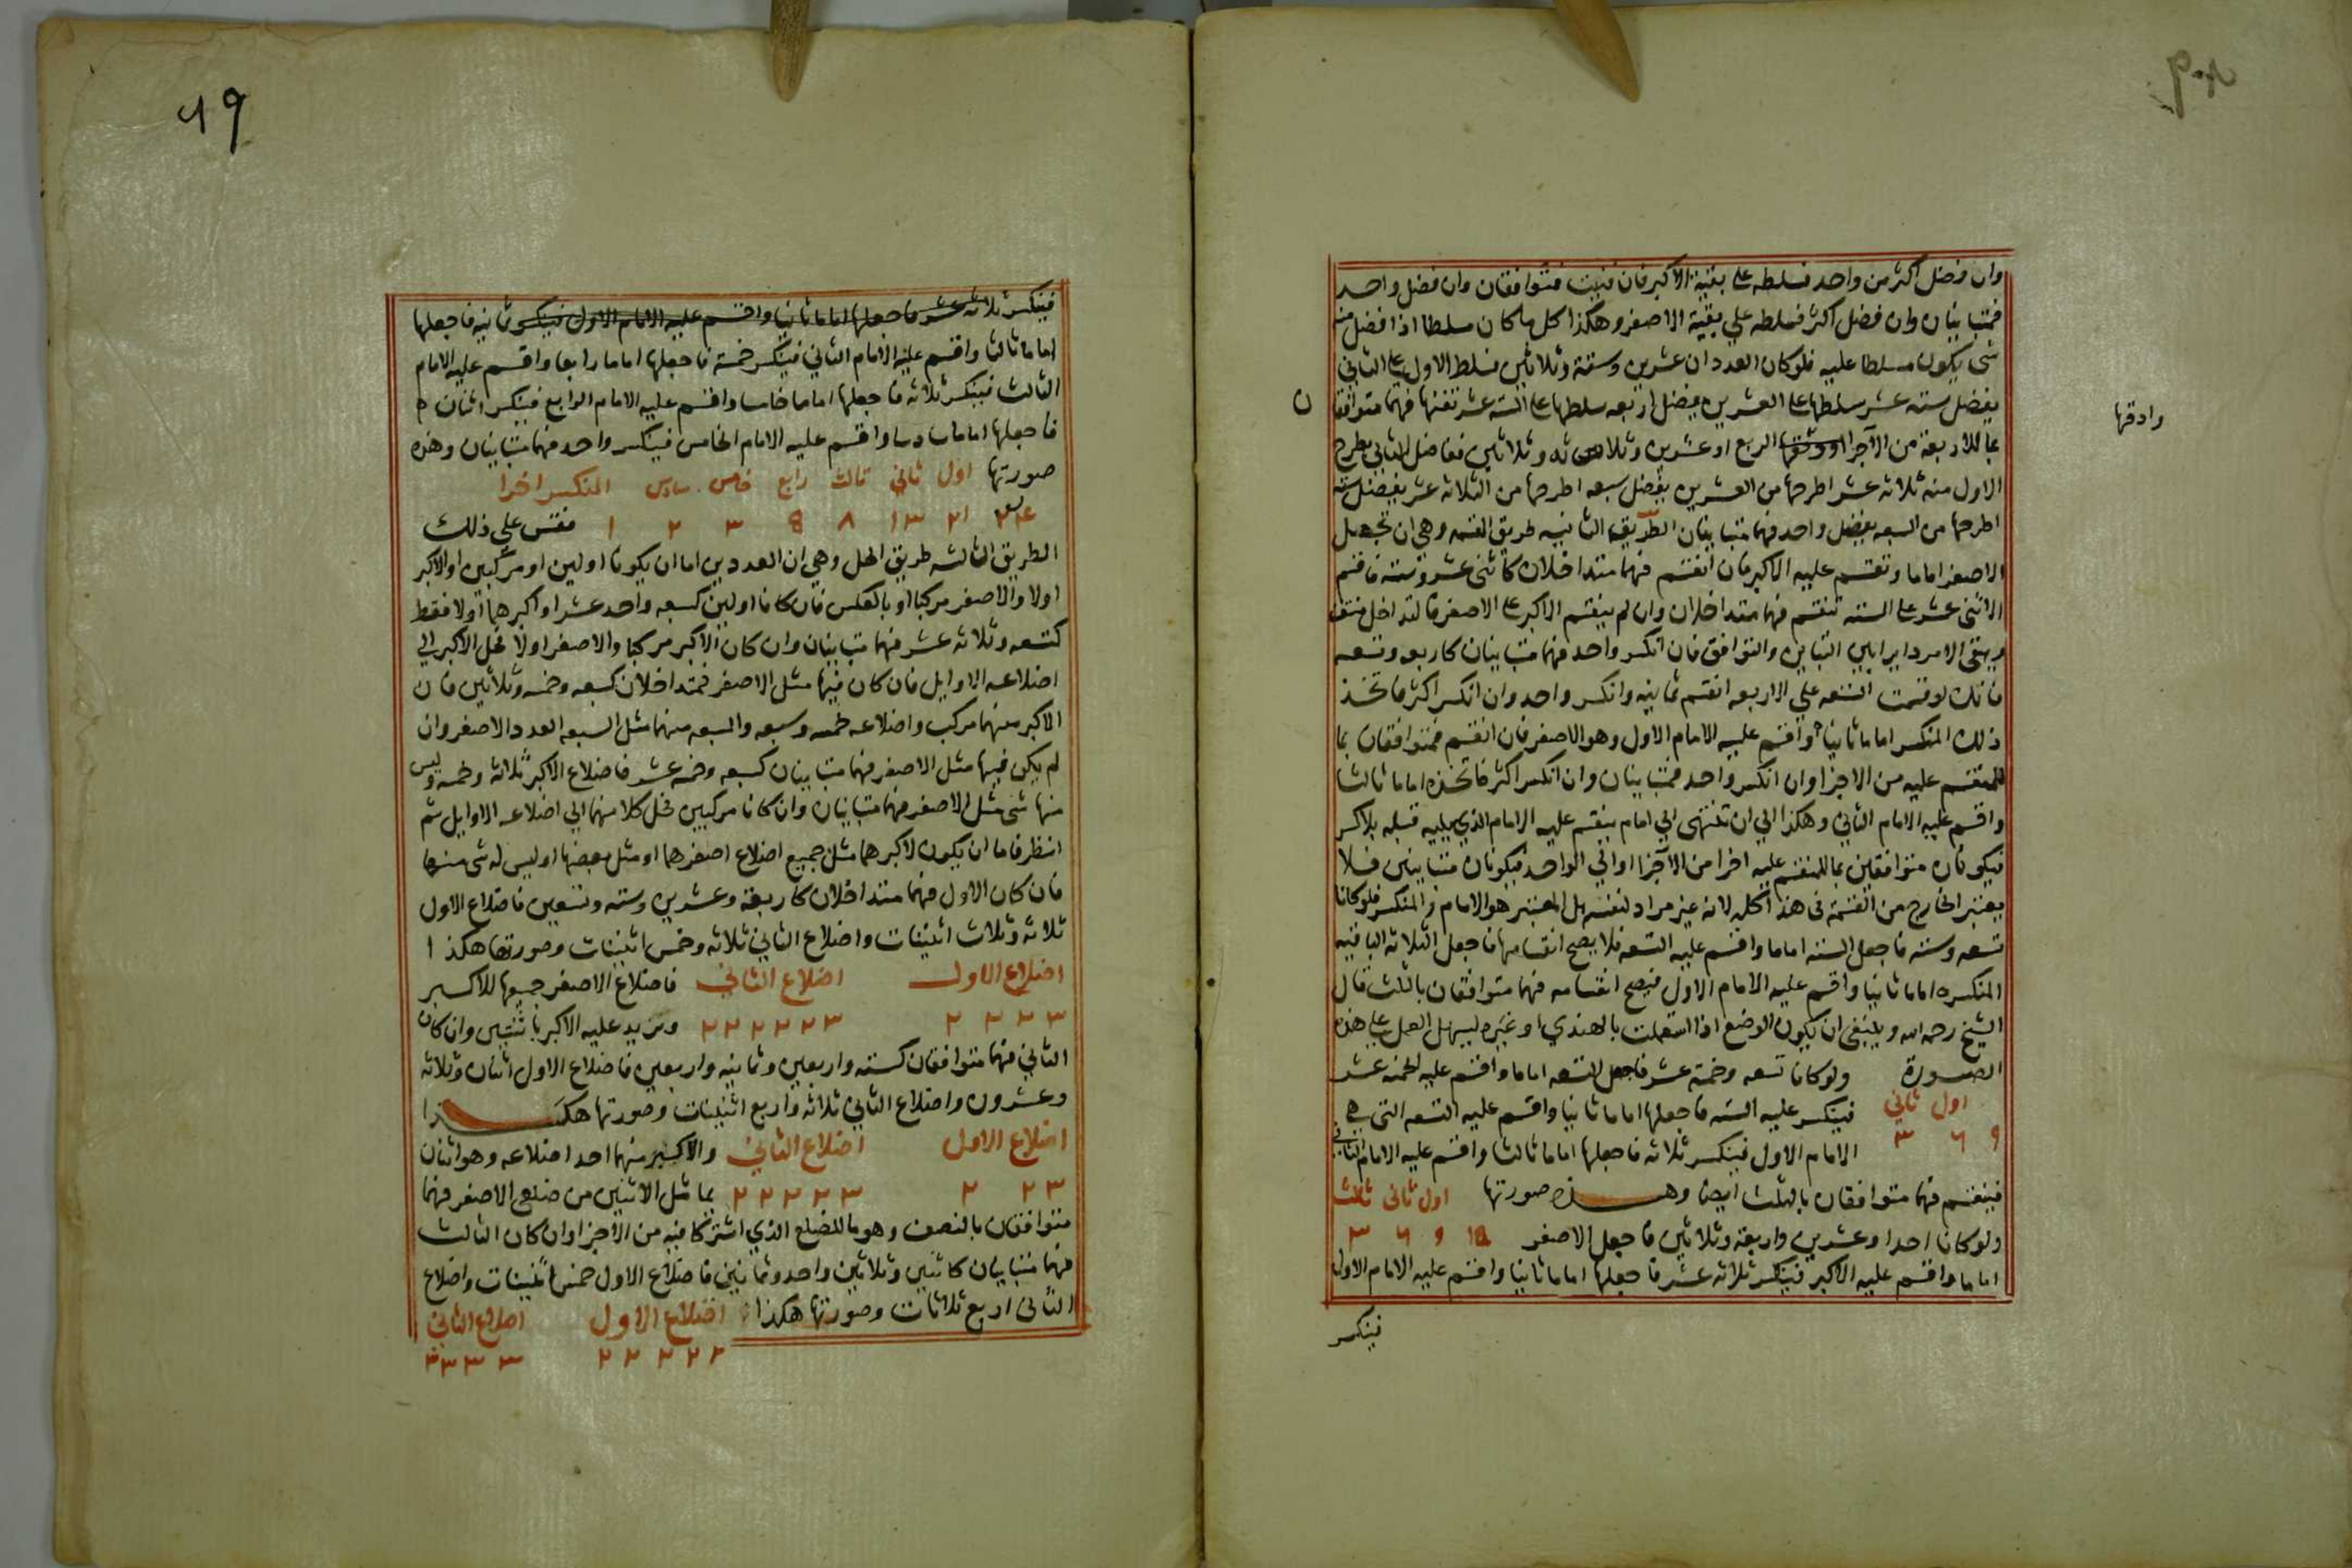 وان فضل اكثر من واحد فسلطه على بقية الاكبر فان فنيت فمتوافقان وان فضل واحد
فمتباينان وان فضل اكثر فسلطه علي بقية الاصغر وهكذا كل ما كان مسلطا اذا فضل منه
شي يكون مسلطا عليه فلو كان العددان عشرين وستة وثلاثين فسلط الاول على الثاني
يفضل سته عشر سلطها على العشرين يفضل اربعه سلطها على السته عشر تفنها فهما متوافقا
ن
بما للاربعة من الاجزا الربع او عشرين وثلاثه وثلاثين ففاضل الثاني بطرح
وادقها
الاول منه ثلاثه عشر اطرحها من العشرين يفضل سبعه اطرحها من الثلاثه عشر يفضل سته
اطرحها من السبعه يفضل واحد فهما متباينان الطريقه الثانيه طريق القسمه وهي ان تجعل
الاصغر اماما وتقسم عليه الاكبر فان انقسم فهما متداخلان كاثنى عشر وسته فاقسم
الاثنى عشر على السته تنقسم فهما متداخلان وان لم ينقسم الاكبر على الاصغر فالتداخل منتف
ويبقى الامر دايرا بين التباين والتوافق فان انكسر واحد فهما متباينان كاربعه وتسعه
فانك لو قسمت التسعه علي الاربعه انقسم ثمانيه وانكسر واحد وان انكسر اكثر فاتخذ
ذلك المنكسر اماما ثانيا واقسم عليه الامام الاول وهو الاصغر فان انقسم فمتوافقان بما
للمنقسم عليه من الاجزا وان انكسر واحد فمتباينان وان انكسر اكثر فاتخذه اماما ثالثا
واقسم عليه الامام الثاني وهكذا الي ان تنتهى الي امام ينقسم عليه الامام الذي يليه قبله بلا كسر
فيكونان متوافقين بما للمنقسم عليه اخرا من الاجزا او الي الواحد فيكونان متباينين فلا
يعتبر الخارج من القسمة في هذا كله لانه غير مراد لنفسه بل المعتبر هو الامام والمنكسر فلو كانا
تسعه وسته فاجعل السته اماما واقسم عليه التسعه فلا يصح انقسامها فاجعل الثلاثه الباقيه
المنكسره اماما ثانيا واقسم عليه الامام الاول فيصح انقسامه فهما متوافقان بالثلث قال
الشيخ رحمه الله وينبغي ان يكون الوضع اذا استعملت بالهندي او غيره ليسهل العمل على هذه
الصورة ولو كانا تسعه وخمسة عشر فاجعل التسعه اماما واقسم عليه الخمسه عشر
اول ثاني فينكسر عليه السته فاجعلها اماما ثانيا واقسم عليه التسعه التي هي
٩ ٦ ٣ الامام الاول فينكسر ثلاثه فاجعلها اماما ثالثا واقسم عليه الامام الثاني
فينقسم فهما متوافقان بالثلث ايضا وهذه صورتها اول ثاني ثالث
ولو كانا احدا وعشرين واربعة وثلاثين فاجعل الاصغر ١٥ ٩ ٦ ٣
اماما واقسم عليه الاكبر فينكسر ثلاثه عشر فاجعلها اماما ثانيا واقسم عليه الامام الاول
فينكسر
٤٩
فينكسر ثلاثه عشر فاجعلها اماما ثانيا واقسم عليه الامام الاول فينكسر ثمانيه فاجعلها
اماما ثالثا واقسم عليه الامام الثاني فينكسر خمسة فاجعلها اماما رابعا واقسم عليه الامام
الثالث فينكسر ثلاثه فاجعلها اماما خامسا واقسم عليه الامام الرابع فينكسر اثنان
فاجعلها اماما سادسا واقسم عليه الامام الخامس فينكسر واحد فهما متباينان وهذه
صورتها اول ثاني ثالث رابع خامس سادس المنكسر اخرا
٣٤ ٢١ ١٣ ٨ ٥ ٣ ٢ ١ فقس علي ذلك
الطريق الثالثه طريق الحل وهي ان العددين اما ان يكونا اولين او مركبين او الاكبر
اولا والاصغر مركبا او بالعكس فان كانا اولين كسبعه واحد عشر او اكبرهما اولا فقط
كتسعه وثلاثه عشر فهما متباينان وان كان الاكبر مركبا والاصغر اولا فحل الاكبر الي
اضلاعه الاوايل فان كان فيها مثل الاصغر فمتداخلان كسبعه وخمسه وثلاثين فان
الاكبر منهما مركب واضلاعه خمسه وسبعه والسبعه منهما مثل السبعه العدد الاصغر وان
لم يكن فيها مثل الاصغر فهما متباينان كسبعه وخمسه عشر فاضلاع الاكبر ثلاثة وخمسه وليس
منها شي مثل الاصغر فهما متباينان وان كانا مركبين فحل كلا منهما الي اضلاعه الاوايل ثم
انظر فاما ان يكون لاكبرهما مثل جميع اضلاع اصغرهما او مثل بعضها او ليس له شي منها
فان كان الاول فهما متداخلان كاربعة وعشرين وسته وتسعين فاضلاع الاول
ثلاثه وثلاث اثنينات واضلاع الثاني ثلاثه وخمس اثنينات وصورتها هكذا
اضلاع الاول اضلاع الثاني فاضلاع الاصغر جميعها للاكبر
٣ ٢ ٢ ٢ ٣ ٢ ٢ ٢ ٢ ٢ ويزيد عليه الاكبر باثنين وان كان
الثاني فهما متوافقان كسته واربعين وثمانيه واربعين فاضلاع الاول اثنان وثلاثه
وعشرون واضلاع الثاني ثلاثه واربع اثنينات وصورتها هكذا
اضلاع الاول اضلاع الثاني والاكبر منهما احد اضلاعه وهو اثنان
٢٣ ٢ ٣ ٢ ٢ ٢ ٢ بماثل الاثنين من ضلعي الاصغر فهما
متوافقان بالنصف وهو ما للضلع الذي اشتركا فيه من الاجزا وان كان الثالث
فهما متباينان كاثنين وثلاثين واحد وثمانين فاضلاع الاول خمس اثنينات واضلاع
الثاني اربع ثلاثات وصورتها هكذا اضلاع الاول اضلاع الثاني
٢ ٢ ٢ ٢ ٢ ٣ ٣ ٣ ٣